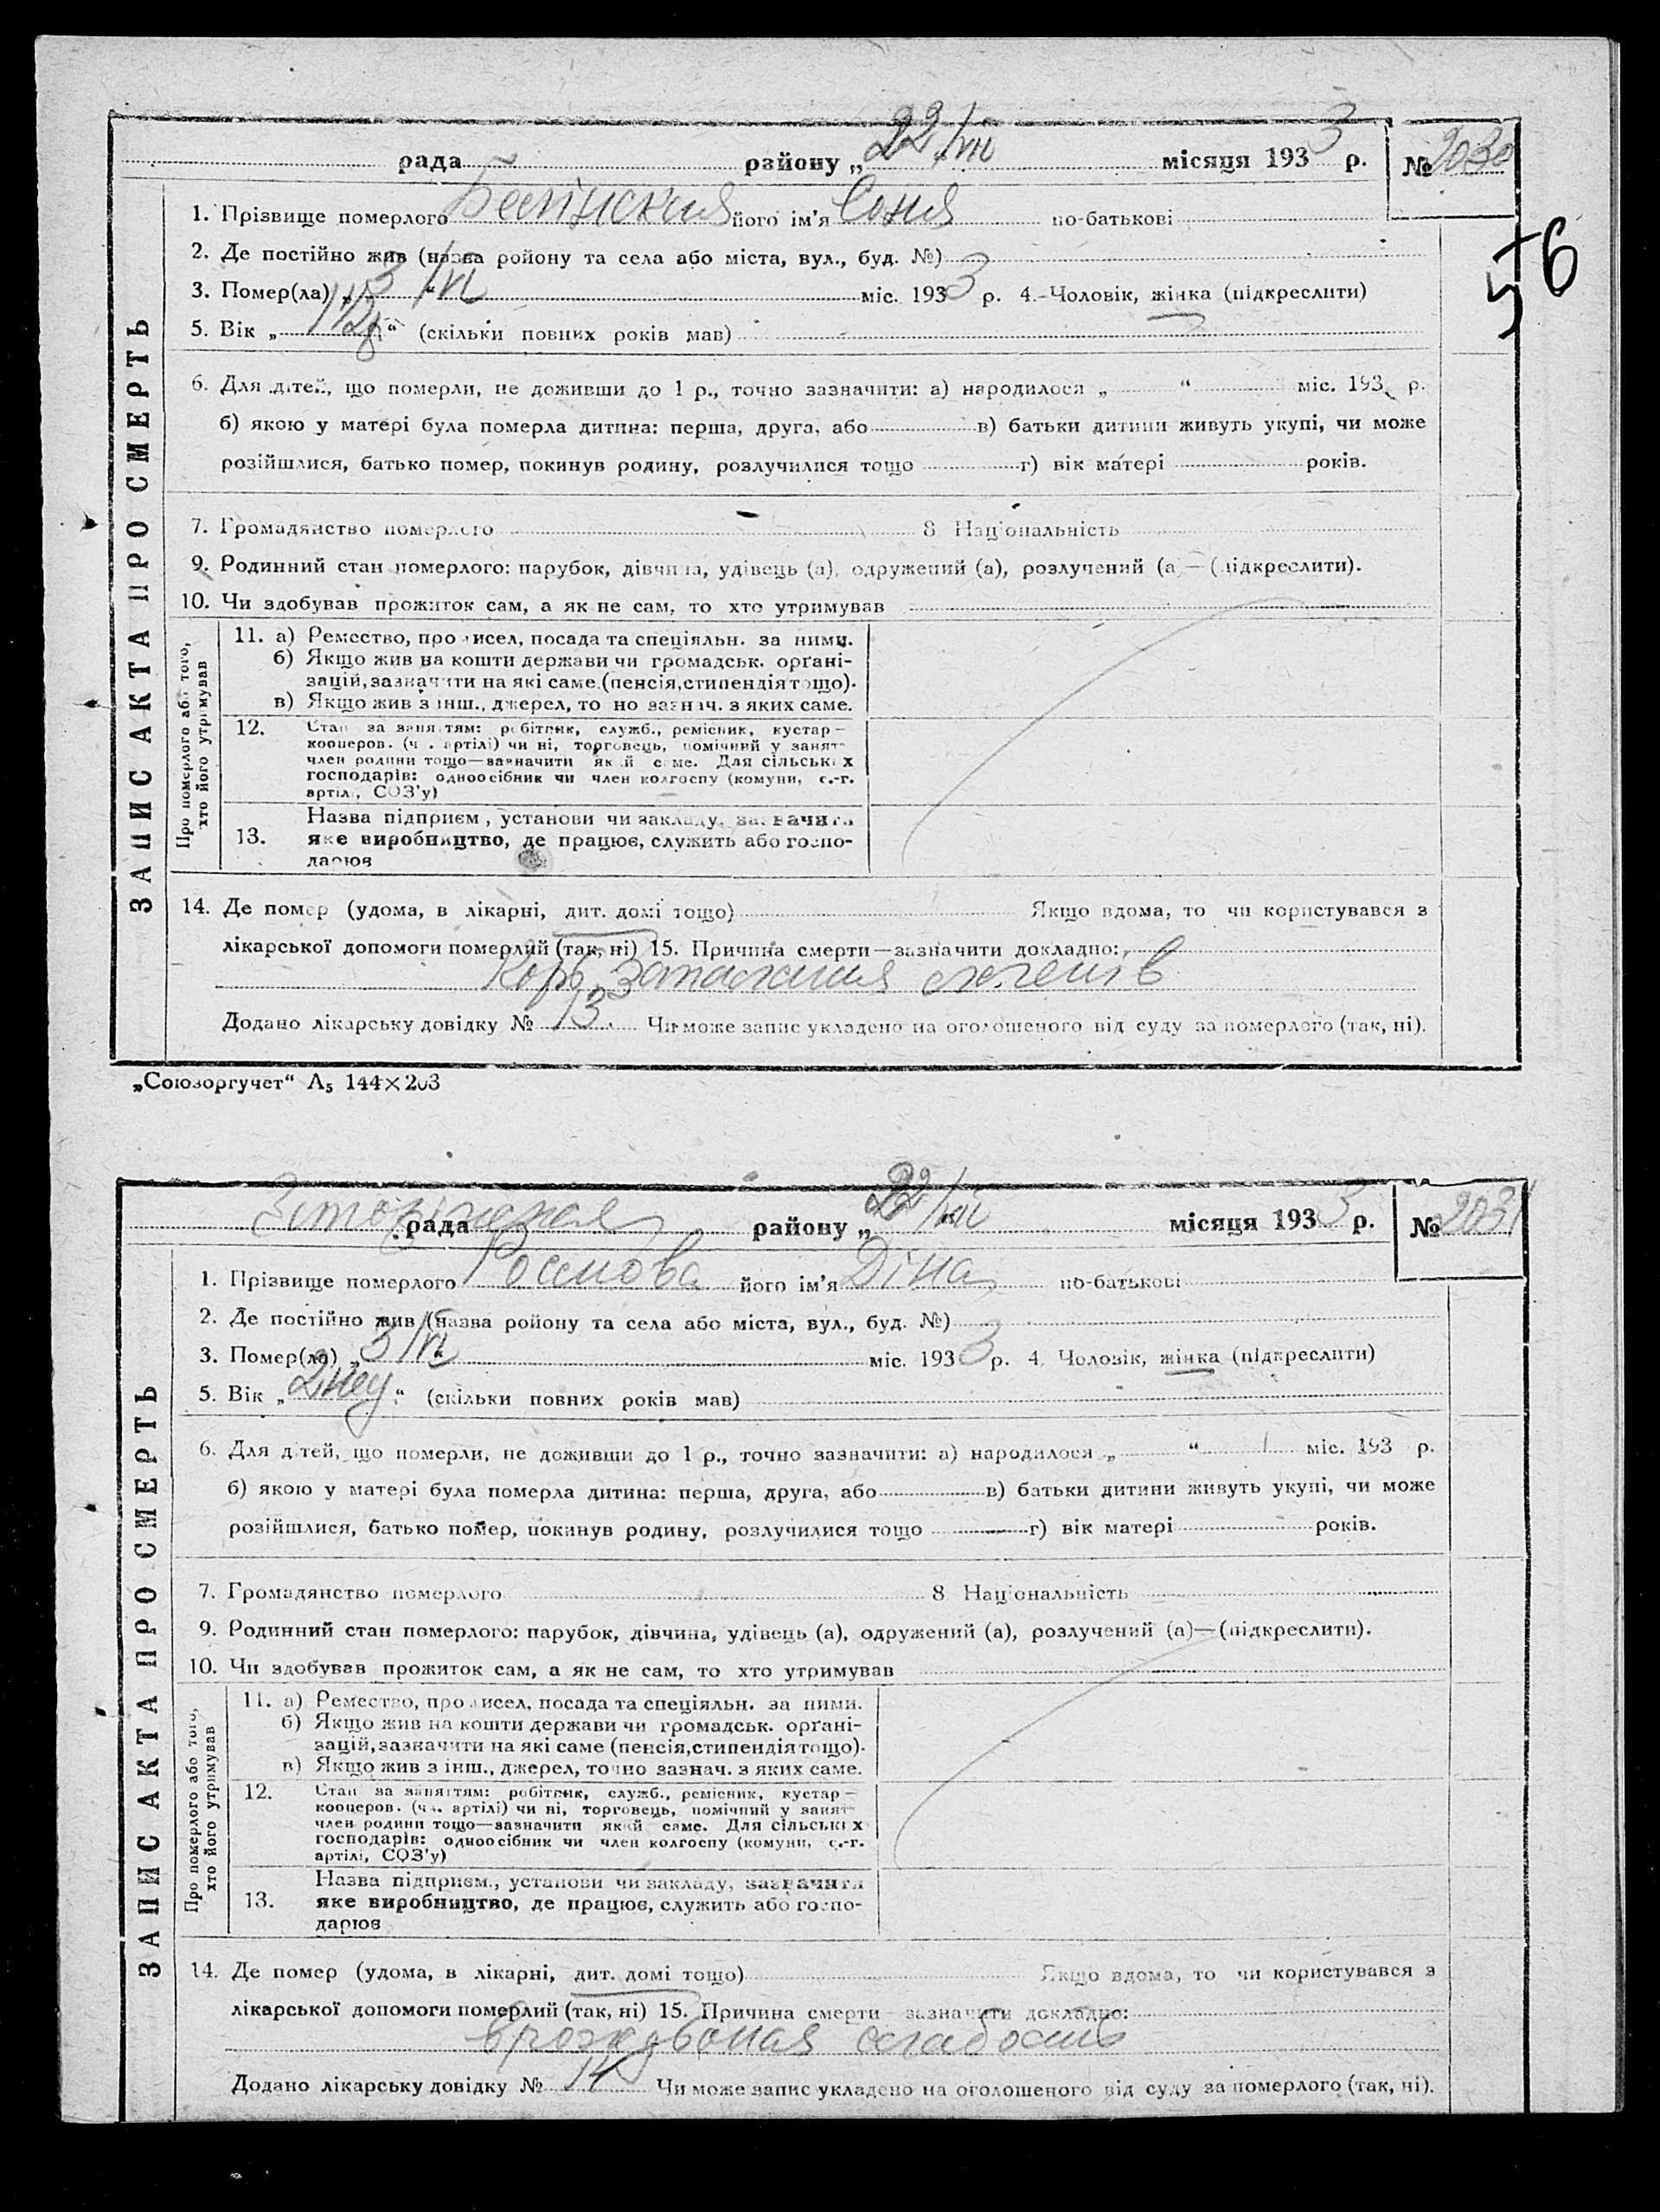 рада району „22/VII місяця 1933 р. № 2030
1. Прізвище померлого його ім'я Соня по-батькові
2. Де постійно жив (назва ройону та села або міста, вул., буд. №)
576
3. Помер(ла) „3/VI“ міс. 1933 р. 4. Чоловік, жінка (підкреслити)
5. Вік „1 1/2 г“ (скільки повних років мав)
6. Для дітей, що померли, не доживши до 1 р., точно зазначити: а) народилося „ “ міс. 193 р.
б) якою у матері була померла дитина: перша, друга, або в) батьки дитини живуть укупі, чи може
розійшлися, батько помер, покинув родину, розлучилися тощо г) вік матері років.
7. Громадянство померлого 8 Національність
9. Родинний стан померлого: парубок, дівчина, удівець (а), одружений (а), розлучений (а)—(підкреслити).
10. Чи здобував прожиток сам, а як не сам, то хто утримував
ЗАПИС АКТА ПРО СМЕРТЬ
Про померлого або того, хто його утримував
11. а) Ремество, промисел, посада та спеціяльн. за ними.
б) Якщо жив на кошти держави чи громадськ. орґані-
зацій, зазначити на які саме (пенсія, стипендія тощо).
в) Якщо жив з інш., джерел, точно зазнач. з яких саме.
12. Стан за заняттям: робітник, служб., ремісник, кустар—
кооперов. (чл. артілі) чи ні, торговець, помічний у занят-
член родини тощо—зазначити який саме. Для сільських
господарів: одноосібник чи член колгоспу (комуни, с.-г.
артілі, СОЗ'у)
13. Назва підприєм., установи чи закладу, зазначити
яке виробництво, де працює, служить або госпо-
дарює
14. Де помер (удома, в лікарні, дит. домі тощо) Якщо вдома, то чи користувався з
лікарської допомоги померлий (так, ні) 15. Причина смерти—зазначити докладно:
Корь, запалення легенів
Додано лікарську довідку № 13. Чи може запис укладено на оголошеного від суду за померлого (так, ні).
„Союзоргучет“ А₅ 144×203
рада району „22/VII місяця 1933 р. № 2031
1. Прізвище померлого його ім'я Діна по-батькові
2. Де постійно жив (назва ройону та села або міста, вул., буд. №)
3. Помер(ла) „3/VI“ міс. 1933 р. 4. Чоловік, жінка (підкреслити)
5. Вік „2 “ (скільки повних років мав)
6. Для дітей, що померли, не доживши до 1 р., точно зазначити: а) народилося „ “ міс. 193 р.
б) якою у матері була померла дитина: перша, друга, або в) батьки дитини живуть укупі, чи може
розійшлися, батько помер, покинув родину, розлучилися тощо г) вік матері років.
7. Громадянство померлого 8 Національність
9. Родинний стан померлого: парубок, дівчина, удівець (а), одружений (а), розлучений (а)—(підкреслити).
10. Чи здобував прожиток сам, а як не сам, то хто утримував
ЗАПИС АКТА ПРО СМЕРТЬ
Про померлого або того, хто його утримував
11. а) Ремество, промисел, посада та спеціяльн. за ними.
б) Якщо жив на кошти держави чи громадськ. орґані-
зацій, зазначити на які саме (пенсія, стипендія тощо).
в) Якщо жив з інш., джерел, точно зазнач. з яких саме.
12. Стан за заняттям: робітник, служб., ремісник, кустар—
кооперов. (чл. артілі) чи ні, торговець, помічний у занят-
член родини тощо—зазначити який саме. Для сільських
господарів: одноосібник чи член колгоспу (комуни, с.-г.
артілі, СОЗ'у)
13. Назва підприєм., установи чи закладу, зазначити
яке виробництво, де працює, служить або госпо-
дарює
14. Де помер (удома, в лікарні, дит. домі тощо) Якщо вдома, то чи користувався з
лікарської допомоги померлий (так, ні) 15. Причина смерти зазначити докладно:
слабость
Додано лікарську довідку № 14 Чи може запис укладено на оголошеного від суду за померлого (так, ні).